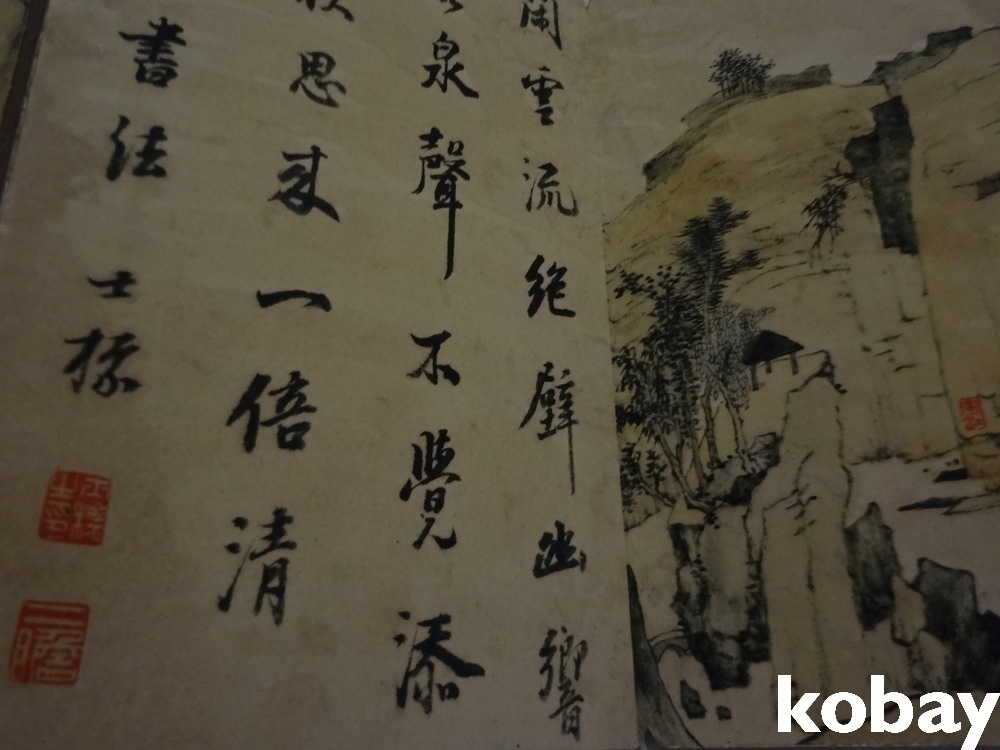 閑雲流絕壁幽響
泉聲不覺添
思來一倍清
書法 士標
二瞻
kobay